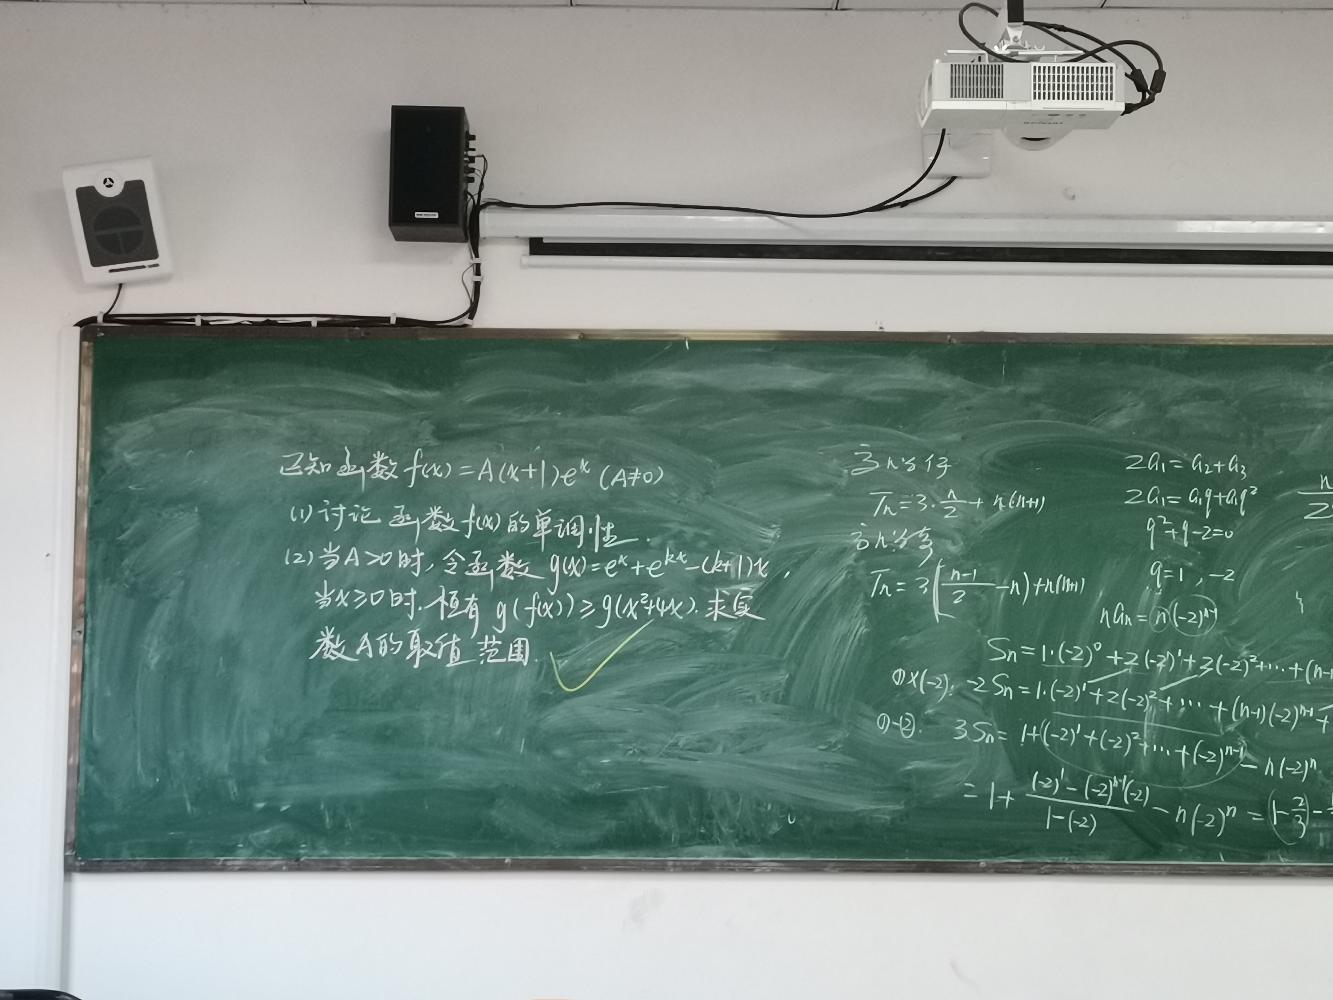 已知函数 f(x)=A(x+1)e^x (A≠0)
(1)讨论函数f(x)的单调性.
(2)当A>0时,令函数 g(x)=e^x+e^{kx}-(k+1)x,
当x≥0时.恒有 g(f(x))≥g(x²+4x).求实
数A的取值范围.
当n为偶
Tn=3·n/2+n(n+1)
Tn=3((n-1)/2-n)+n(n+1)
2a₁=a₂+a₃
2a₁=a₁q+a₁q²
q²+q-2=0
q=1,-2
naₙ=n(-2)^{n-1}
Sn=1·(-2)⁰+2(-2)¹+3(-2)²+…+(n-1
①×(-2): -2Sn=1·(-2)¹+2(-2)²+…+(n-1)(-2)^{n-1}+
①-②: 3Sn=1+(-2)¹+(-2)²+…+(-2)^{n-1}-n(-2)^n
=1+((-2)¹-(-2)^{n-1}(-2))/(1-(-2))-n(-2)^n=(1-2/3)-